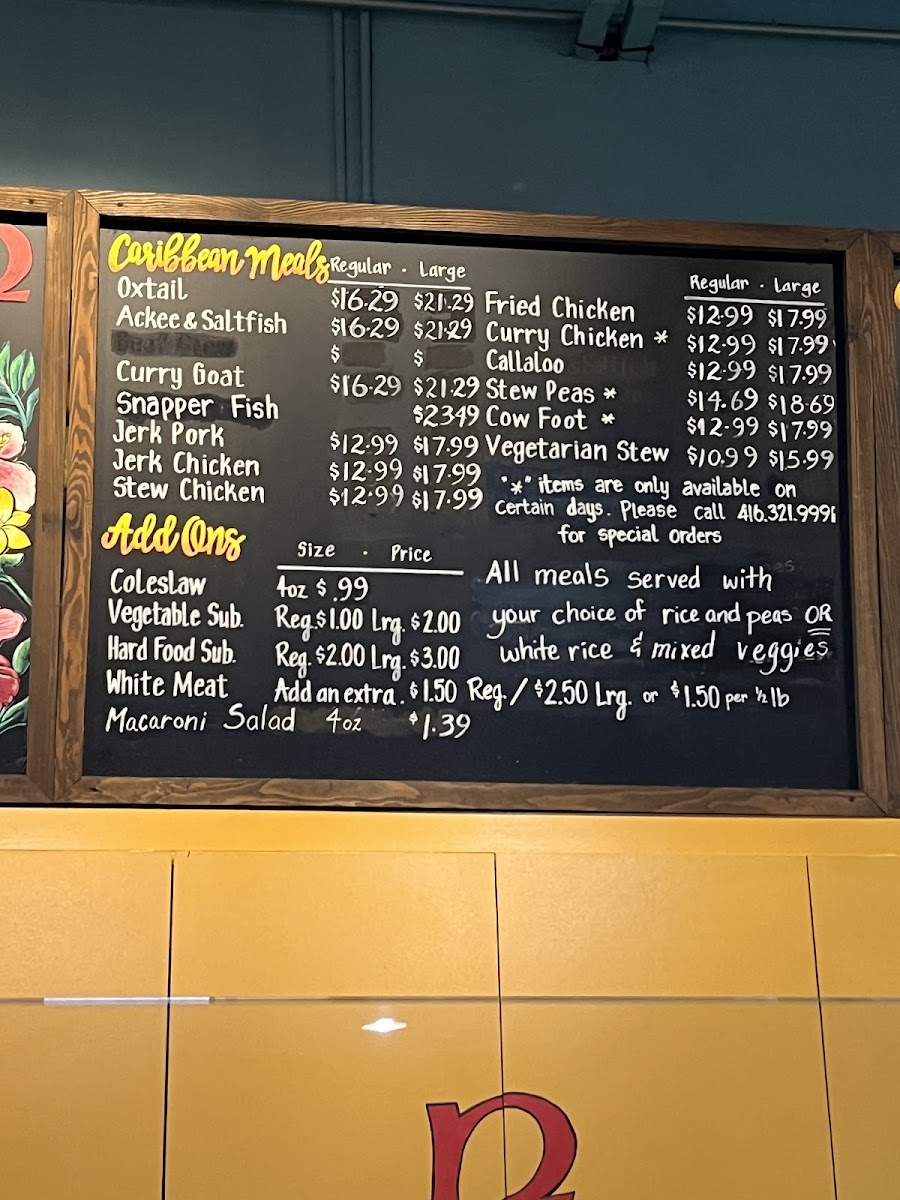 Caribbean Meals Regular · Large
Oxtail $16.29 $21.29
Ackee & Saltfish $16.29 $21.29
$ $
Curry Goat $16.29 $21.29
Snapper Fish $23.49
Jerk Pork $12.99 $17.99
Jerk Chicken $12.99 $17.99
Stew Chicken $12.99 $17.99
Regular · Large
Fried Chicken $12.99 $17.99
Curry Chicken * $12.99 $17.99
Callaloo $12.99 $17.99
Stew Peas * $14.69 $18.69
Cow Foot * $12.99 $17.99
Vegetarian Stew $10.99 $15.99
"*" items are only available on
certain days. Please call 416.321.9991
for special orders
Add Ons Size · Price
Coleslaw 4oz $.99
Vegetable Sub. Reg.$1.00 Lrg. $2.00
Hard Food Sub. Reg. $2.00 Lrg. $3.00
White Meat Add an extra. $1.50 Reg./$2.50 Lrg. or $1.50 per ½ lb
Macaroni Salad 4oz $1.39
All meals served with
your choice of rice and peas OR
white rice & mixed veggies